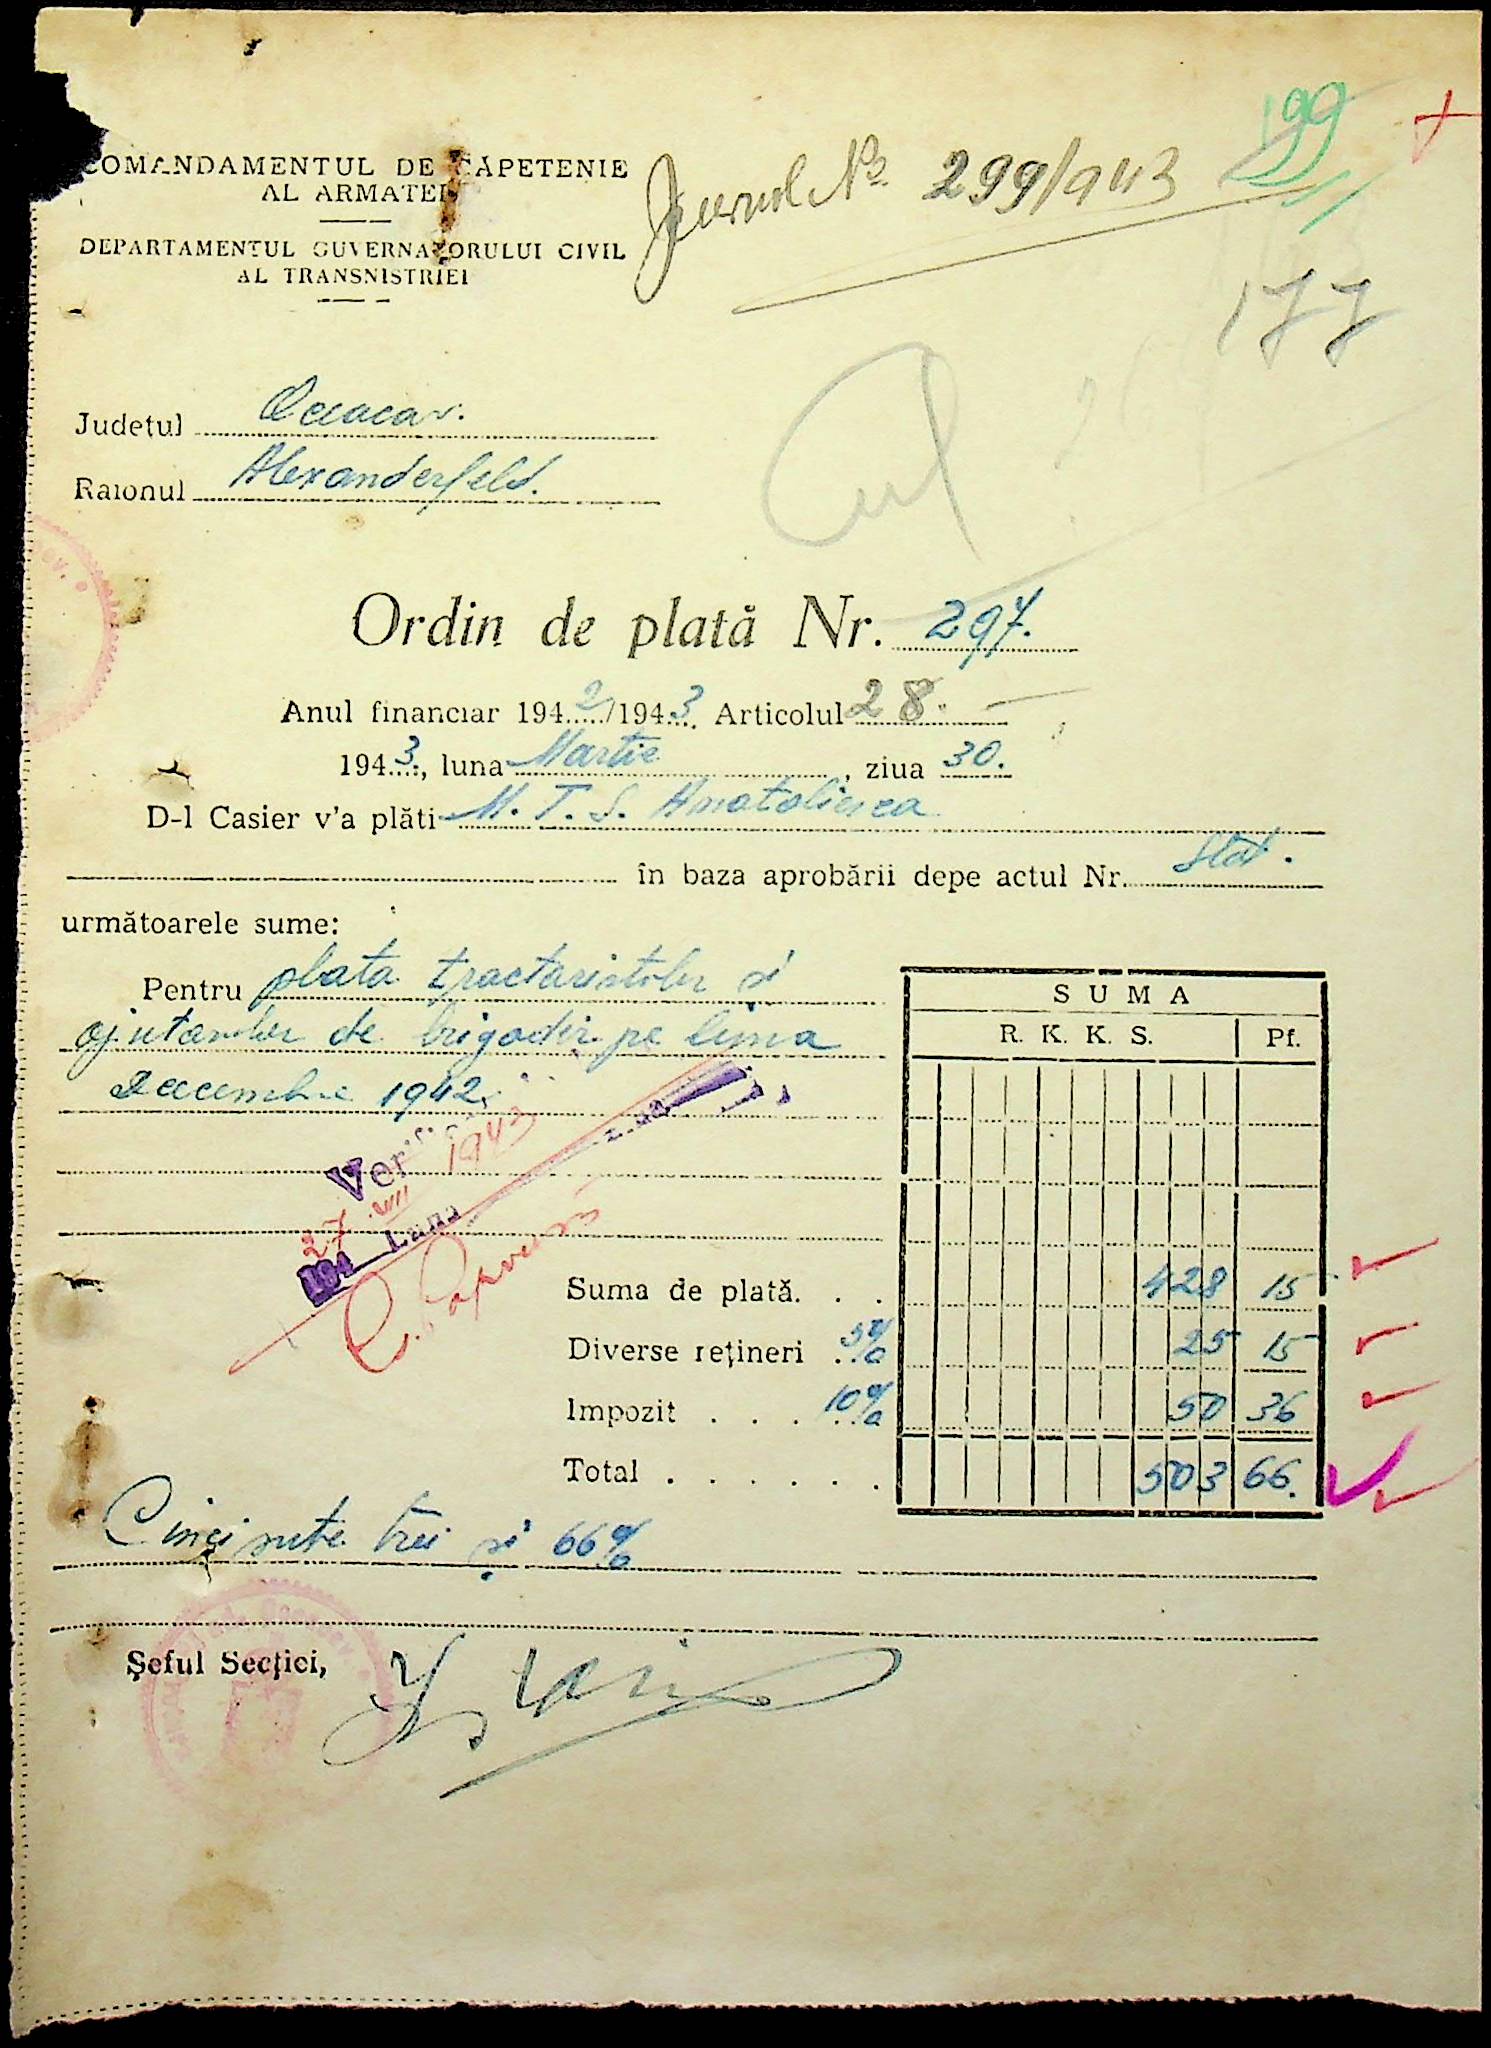 COMANDAMENTUL DE CAPETENIE
AL ARMATEI
DEPARTAMENTUL GUVERNATORULUI CIVIL
AL TRANSNISTRIEI
Jurnal No. 299/943
199
177
Judetul Oceacov.
Raionul Alexanderfeld.
Ordin de plată Nr. 297.
Anul financiar 1942/1943 Articolul 28.
1943, luna Martie, ziua 30.
D-l Casier v'a plăti M. T. S. Anatolievca
în baza aprobării depe actul Nr. Stat.
următoarele sume:
Pentru plata tractoristilor si
ajutorilor de brigadir pe luna
Decembrie 1942.
SUMA
R. K. K. S. Pf.
1943
27 VIII
194 Luna
Suma de plată. . . 428 15
Diverse rețineri 5% 25 15
Impozit . . . 10% 50 36
Total . . . . . . 503 66.
Cinci sute trei si 66%
Șeful Secției,